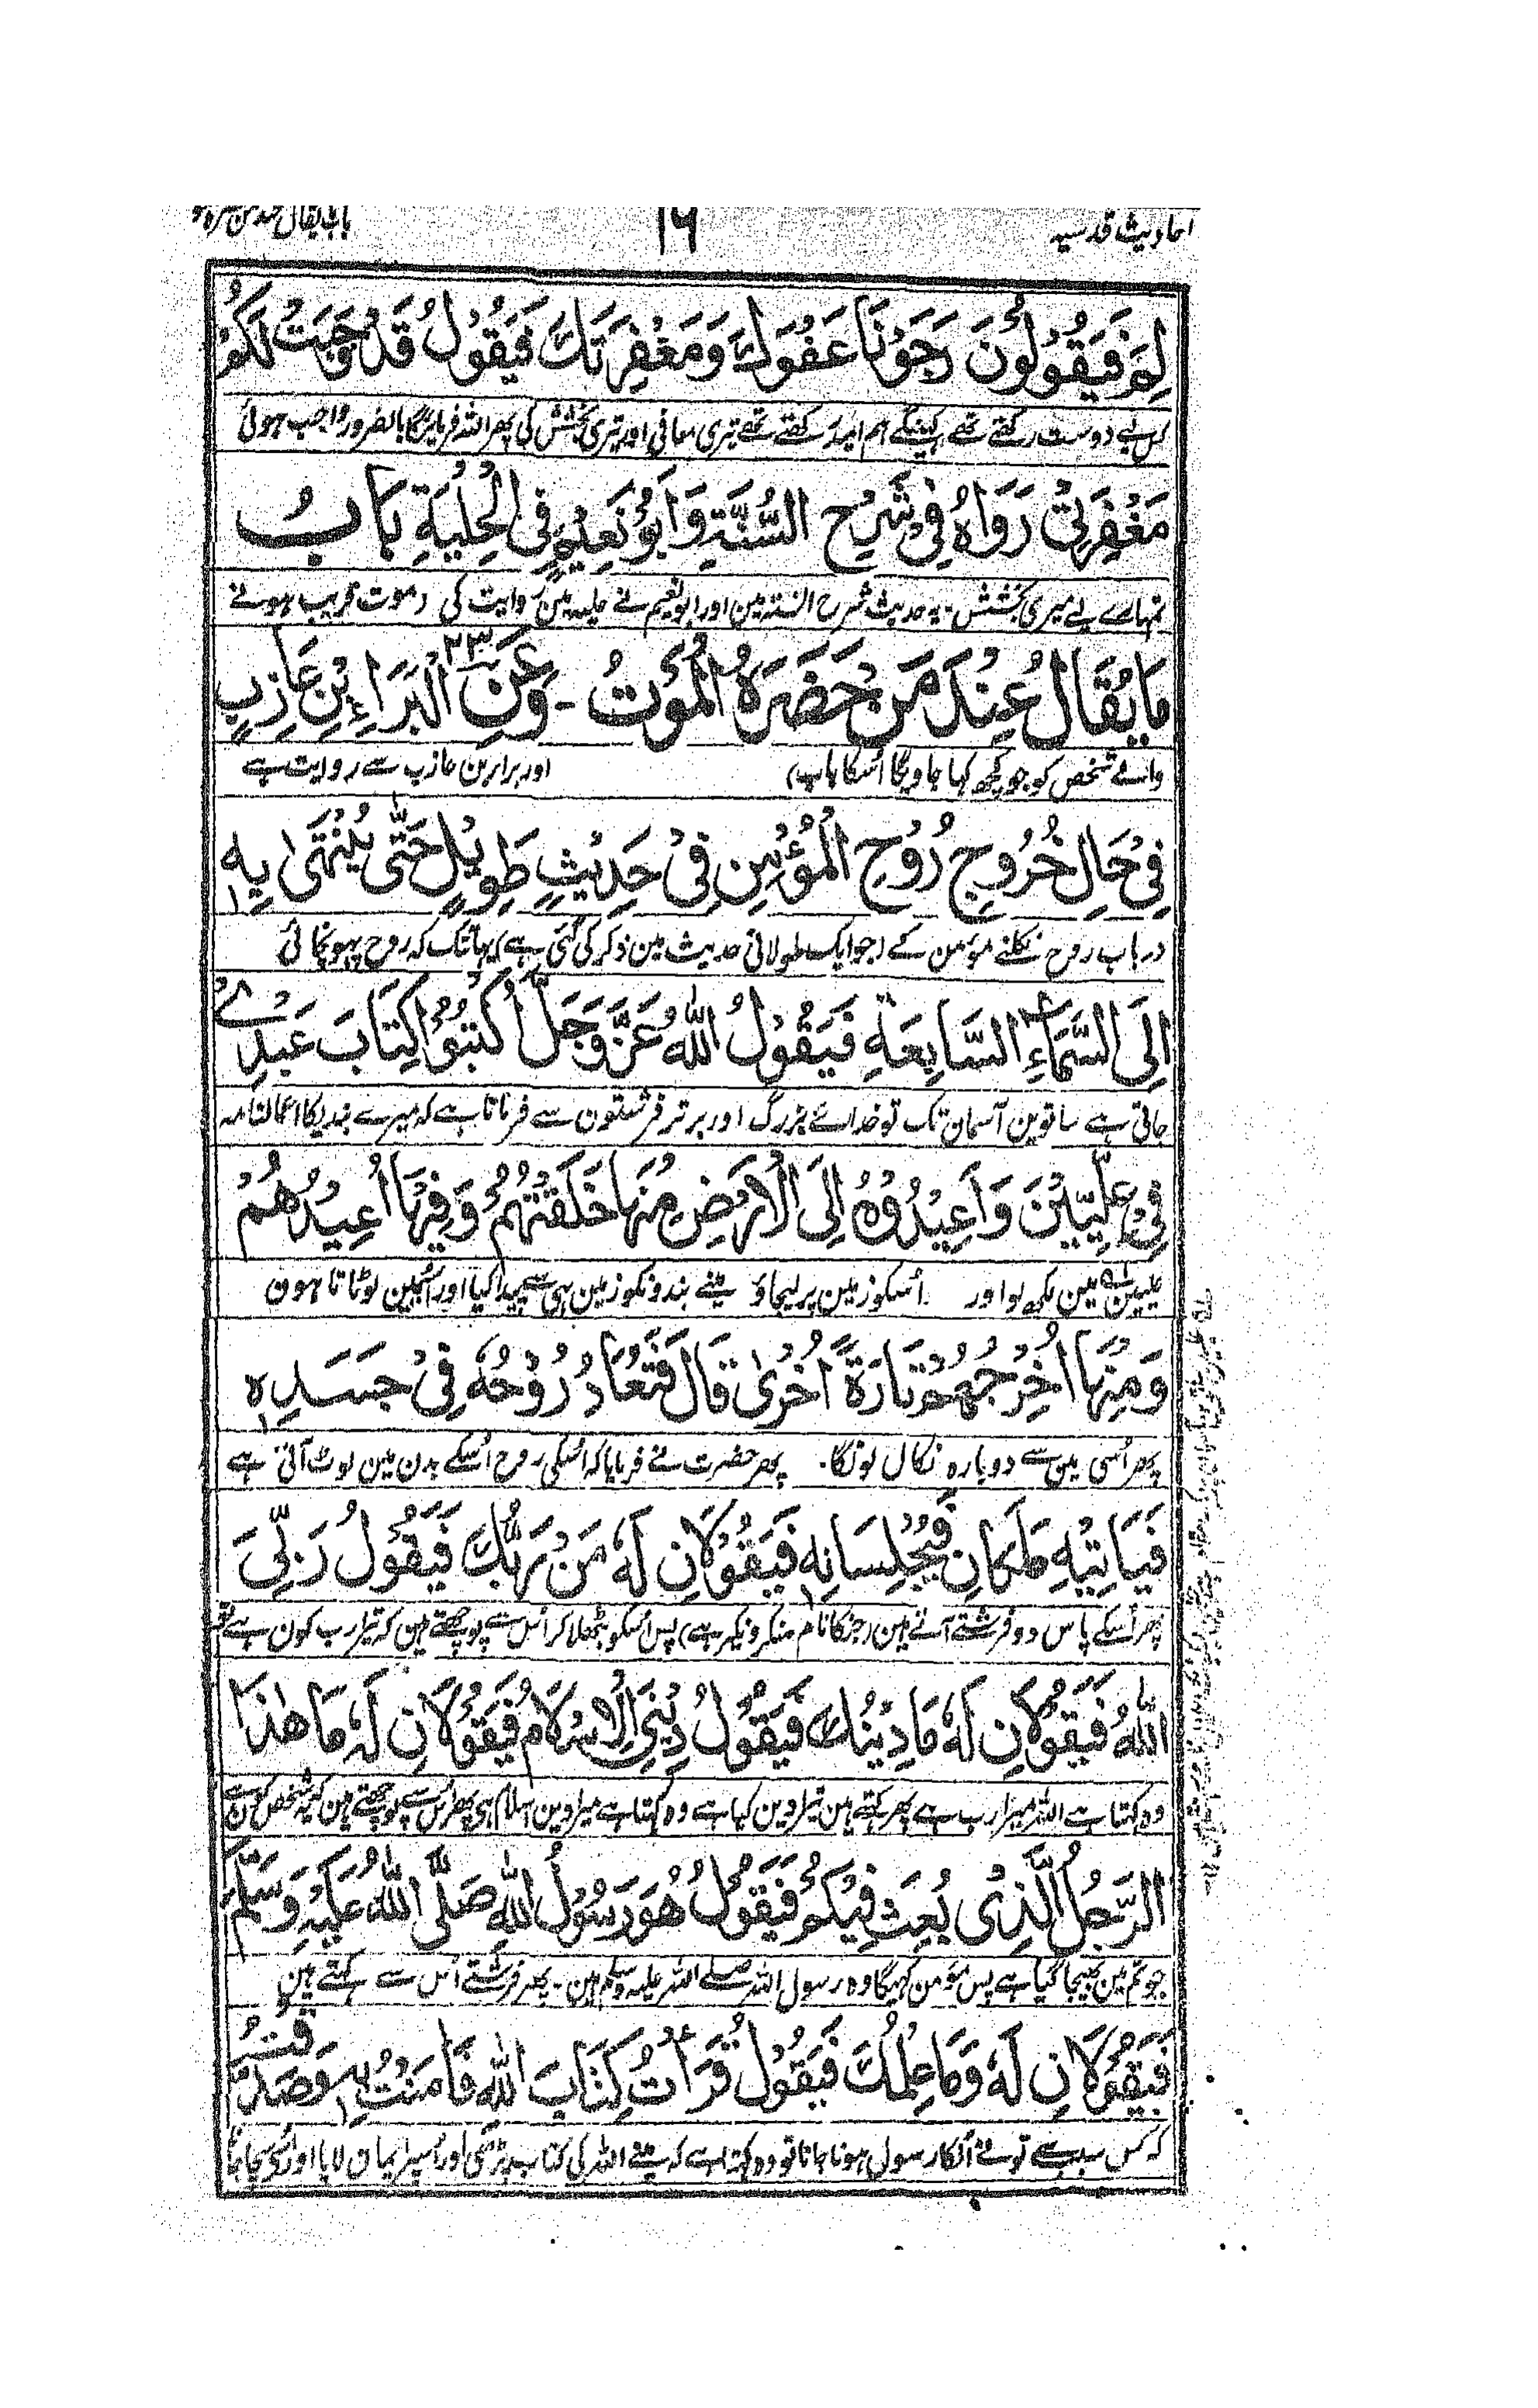 احادیث قدسیہ
۱۶
لِمَ فَيَقُوْلُوْنَ رَجَوْنَا عَفْوَكَ وَمَغْفِرَتَكَ فَيَقُوْلُ قَدْ وَجَبَتْ لَكُمْ
کس لیے دوست رکھتے تھے کہینگے ہم امید رکھتے تھے تیری معافی اور تیری بخشش کی پھر اللہ فرمائیگا بالضرور واجب ہوئی
مَغْفِرَتِيْ رَوَاهُ فِيْ شَرْحِ السُّنَّةِ وَاَبُوْ نُعَيْمٍ فِي الْحِلْيَةِ بَابُ
تمہارے لیے میری بخشش ۔ یہ حدیث شرح السنہ مین اور ابو نعیم نے حلیہ مین روایت کی (موت قریب ہونے
مَا يُقَالُ عِنْدَ مَنْ حَضَرَهُ الْمَوْتُ - وَعَنِ الْبَرَاءِ بْنِ عَازِبٍ ۲۳
والے شخص کو جو کچھ کہا جاویگا اُسکا باب) اور براء بن عازب سے روایت ہے
فِيْ حَالِ خُرُوْجِ رُوْحِ الْمُؤْمِنِ فِيْ حَدِيْثٍ طَوِيْلٍ حَتّٰى يُنْتَهٰى بِهٖ
درباب روح نکلنے مؤمن کے (جو ایک طولانی حدیث مین ذکر کی گئی ہے) یہانتک کہ روح پہونچائی
اِلَى السَّمَاءِ السَّابِعَةِ فَيَقُوْلُ اللّٰهُ عَزَّ وَجَلَّ اكْتُبُوْا كِتَابَ عَبْدِيْ
جاتی ہے ساتوین آسمان تک تو خدائے بزرگ اور برتر فرشتون سے فرماتا ہے کہ میرے بندیکا اعمالنامہ
فِيْ عِلِّيِّيْنَ وَاَعِيْدُوْهُ اِلَى الْاَرْضِ مِنْهَا خَلَقْتُهُمْ وَفِيْهَا اُعِيْدُهُمْ
علیین مین لکھ لو اور اُسکو زمین پر لیجاؤ مینے بندونکو زمین ہی سے پیدا کیا اور اُسمین لوٹاتا ہون
وَمِنْهَا اُخْرِجُهُمْ تَارَةً اُخْرٰى قَالَ فَتُعَادُ رُوْحُهٗ فِيْ جَسَدِهٖ
پھر اُسی مین سے دوبارہ نکال لونگا ۔ پھر حضرت نے فرمایا کہ اُسکی روح اُسکے بدن مین لوٹ آتی ہے
فَيَاْتِيْهِ مَلَكَانِ فَيُجْلِسَانِهٖ فَيَقُوْلَانِ لَهٗ مَنْ رَبُّكَ فَيَقُوْلُ رَبِّيَ
پھر اُسکے پاس دو فرشتے آتے ہین (جنکا نام منکر و نکیر ہے) پس اُسکو بٹھلا کر اُس سے پوچھتے ہین کہ تیرا رب کون ہے تو
اللّٰهُ فَيَقُوْلَانِ لَهٗ مَا دِيْنُكَ فَيَقُوْلُ دِيْنِيَ الْاِسْلَامُ فَيَقُوْلَانِ لَهٗ مَا هٰذَا
وہ کہتا ہے اللہ میرا رب ہے پھر کہتے ہین تیرا دین کیا ہے وہ کہتا ہے میرا دین اسلام ہی پھر اُس سے پوچھتے ہین کہ یہ شخص کون ہے
الرَّجُلُ الَّذِيْ بُعِثَ فِيْكُمْ فَيَقُوْلُ هُوَ رَسُوْلُ اللّٰهِ صَلَّى اللّٰهُ عَلَيْهِ وَسَلَّمَ
جو تم مین بھیجا گیا ہے پس مؤمن کہیگا وہ رسول اللہ صلے اللہ علیہ وسلم ہین ۔ پھر فرشتے اُس سے کہتے ہین
فَيَقُوْلَانِ لَهٗ وَمَا عِلْمُكَ فَيَقُوْلُ قَرَاْتُ كِتَابَ اللّٰهِ فَاٰمَنْتُ بِهٖ وَصَدَّقْتُ
کہ کس سبب سے تونے اُنکا رسول ہونا جانا تو وہ کہتا ہے کہ مینے اللہ کی کتاب پڑھی اور اُسپر ایمان لایا اور اُسکو سچا جانا